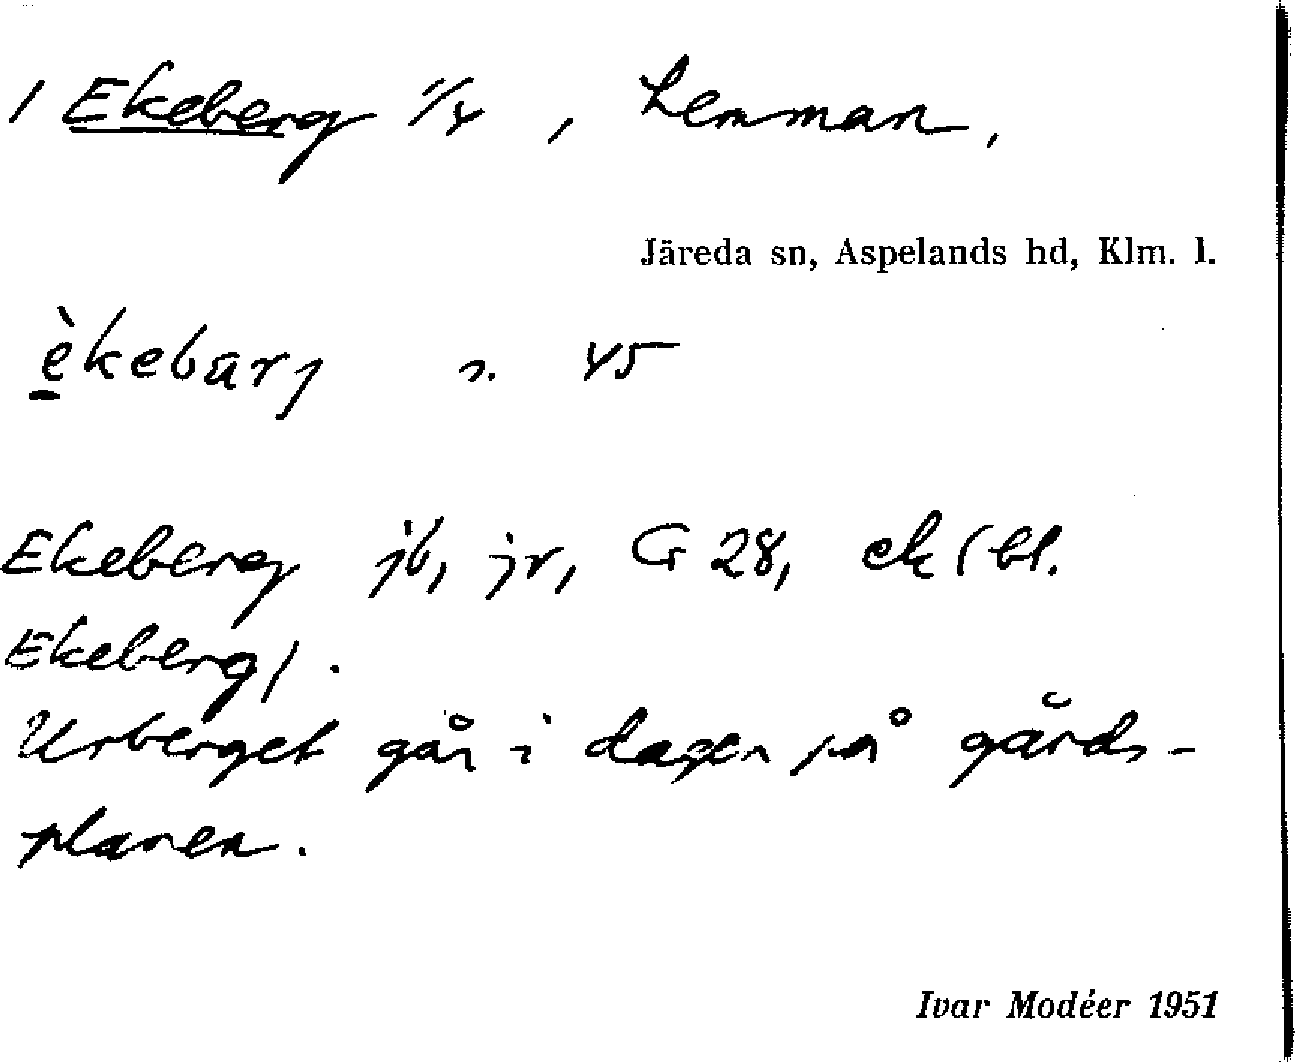 1 Ekeberg 1/4, hemman,
Järeda sn, Aspelands hd, Klm. l.
èkebärj s. 45
Ekeberg jb, jr, G 28, ek (bl.
Ekeberg).
Urberget går i dagen på gårds-
planen.
Ivar Modéer 1951